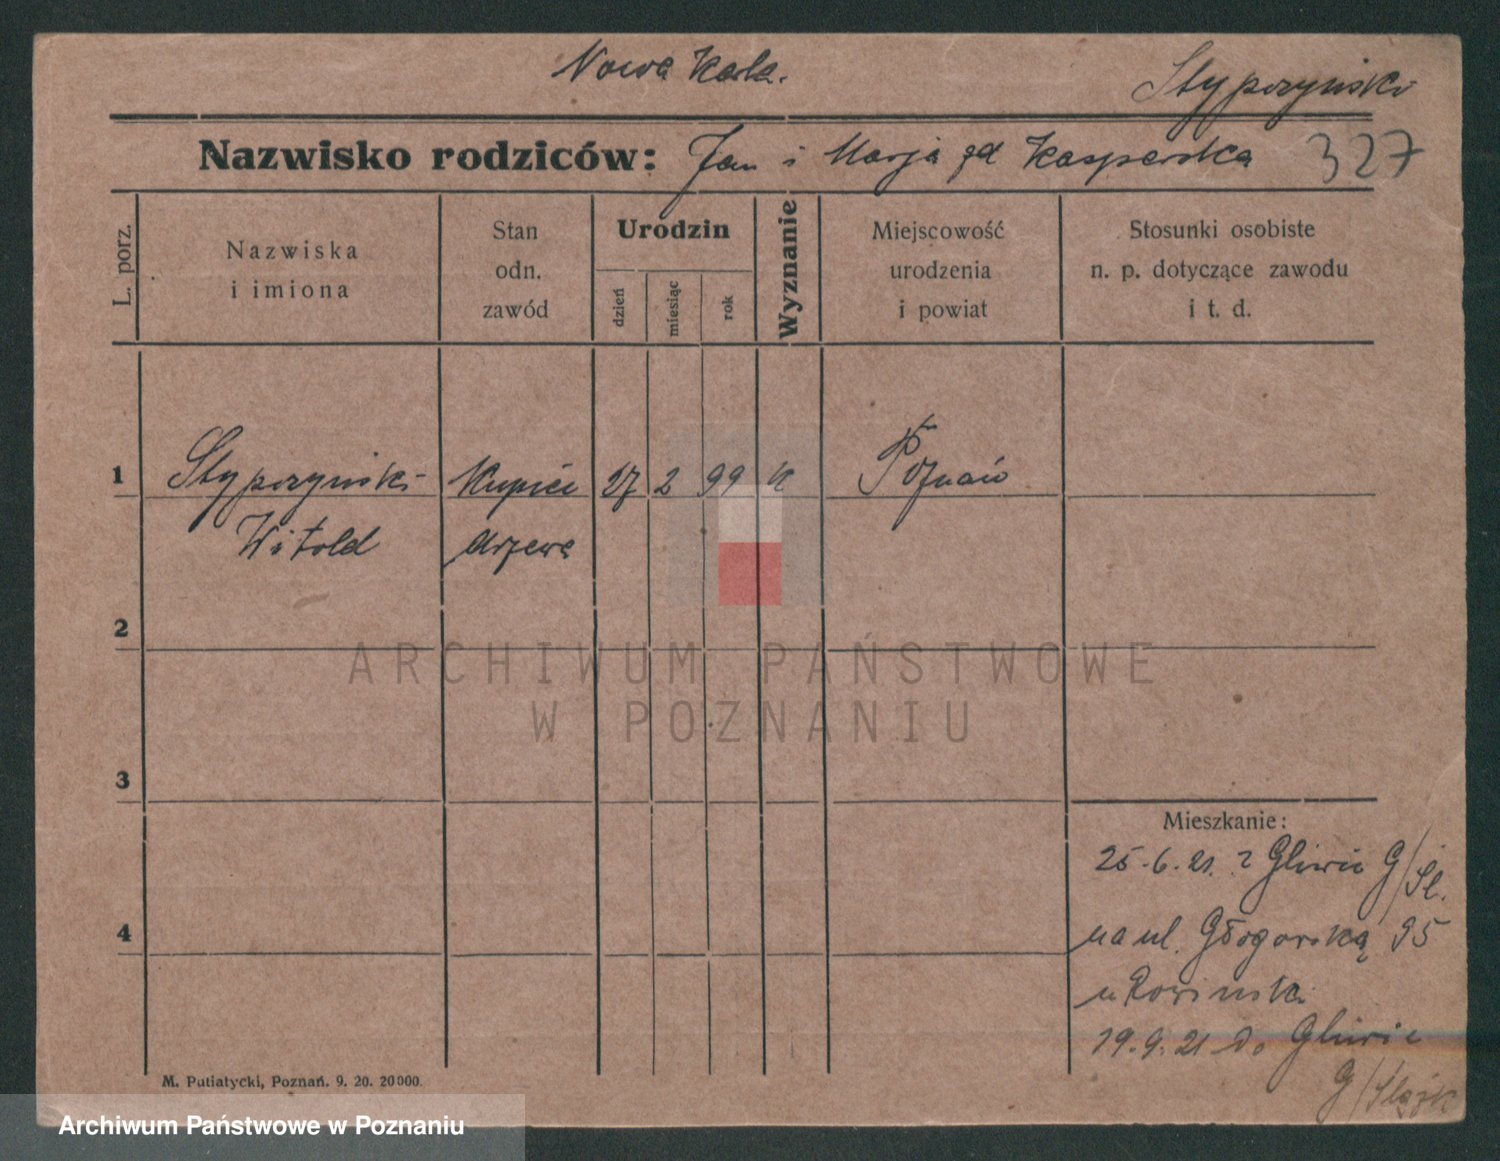 Nowa Karta.
Stypczyński
Nazwisko rodziców: Jan i Marja zd Kasperska 327
L. porz.
Nazwiska
i imiona
Stan
odn.
zawód
Urodzin
dzień
miesiąc
rok
Wyznanie
Miejscowość
urodzenia
i powiat
Stosunki osobiste
n. p. dotyczące zawodu
i t. d.
1 Stypczyński kupiec 27 2 99 k Poznań
Witold drzewa
2
ARCHIWUM PAŃSTWOWE
W POZNANIU
3
Mieszkanie:
25.6.21. z Gliwic G/Śl.
4
na ul. Głogorską 95
u Rowinski
19.9.21 do Gliwic
G/Śląsk
M. Putiatycki, Poznań. 9. 20. 20000.
Archiwum Państwowe w Poznaniu